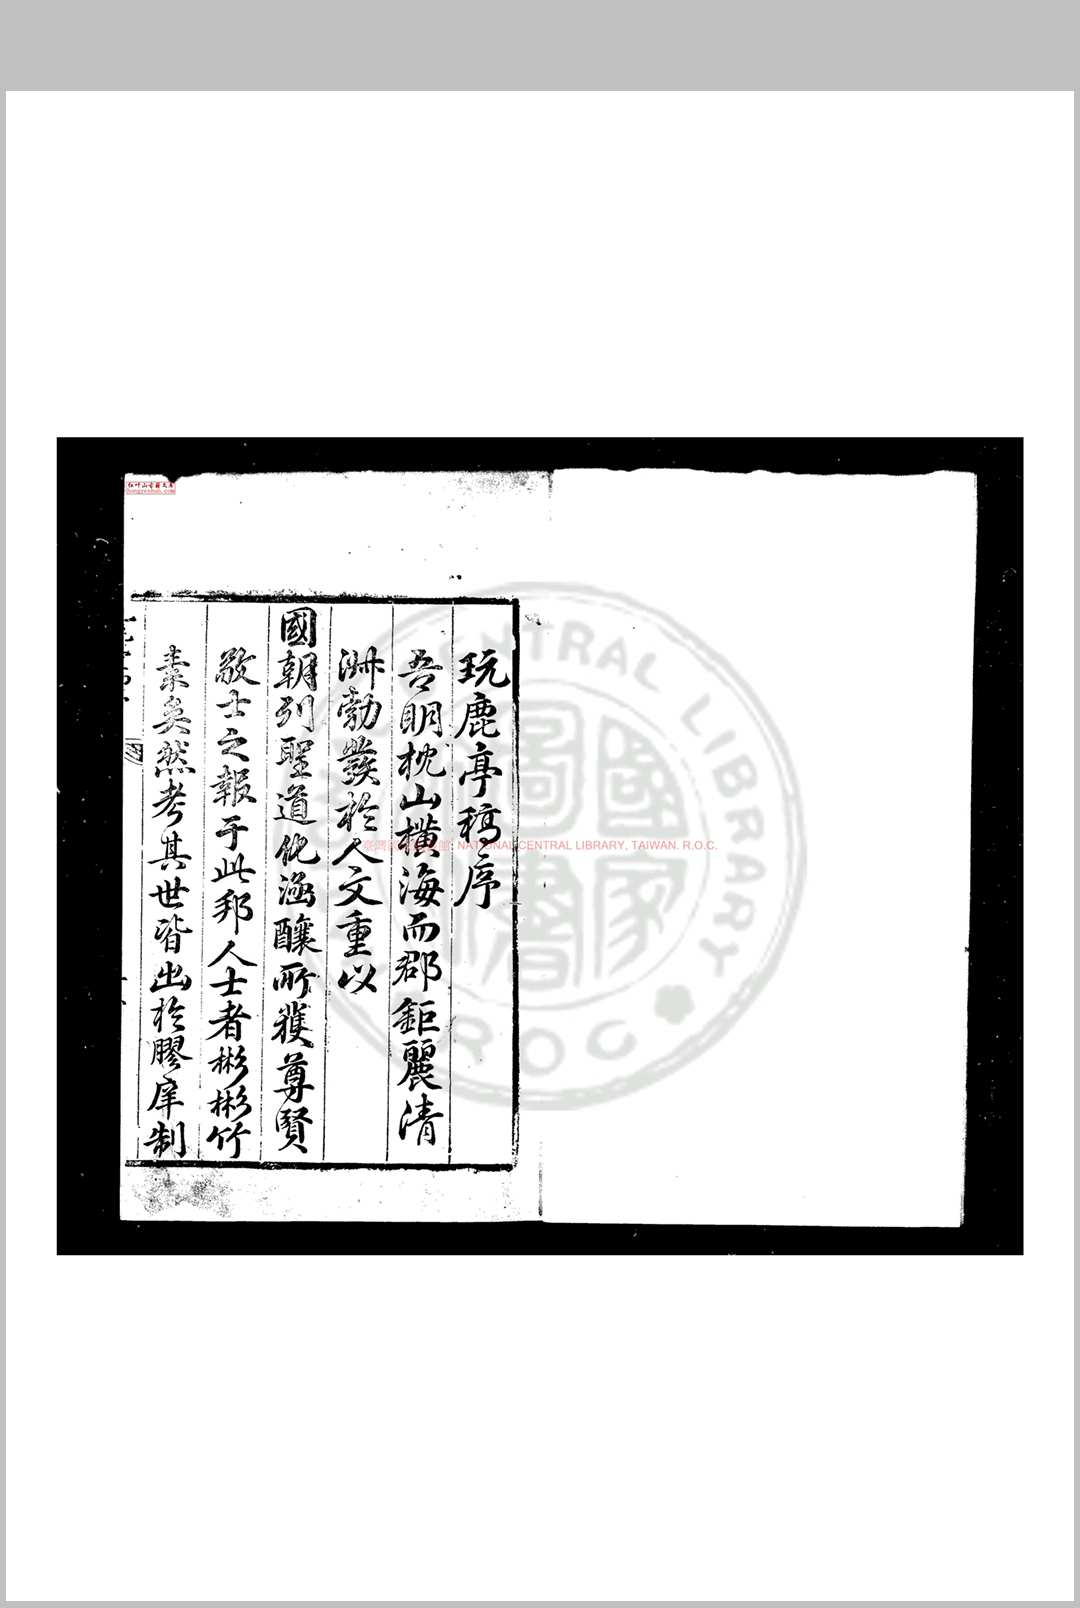 玩鹿亭稿序
吾明枕山橫海而郡鉅麗清
淋勃發於人文重以
國朝列聖道化涵釀所獲尊賢
敬士之報于此邦人士者彬彬竹
素矣然考其世皆出於膠庠制
NATIONAL CENTRAL LIBRARY, TAIWAN. R.O.C.
CENTRAL LIBRARY
R O C
國家圖書